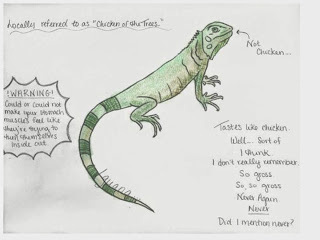 Locally referred to as "Chicken of the Trees."
Not
Chicken...
!WARNING!
Could or could not
make your stomach
muscles feel like
they're trying to
turn themselves
inside out.
Tastes like chicken.
Well.... Sort of
I think.
I don't really remember.
So gross
So, so gross
Never Again
Never
Did I mention never?
Iguana